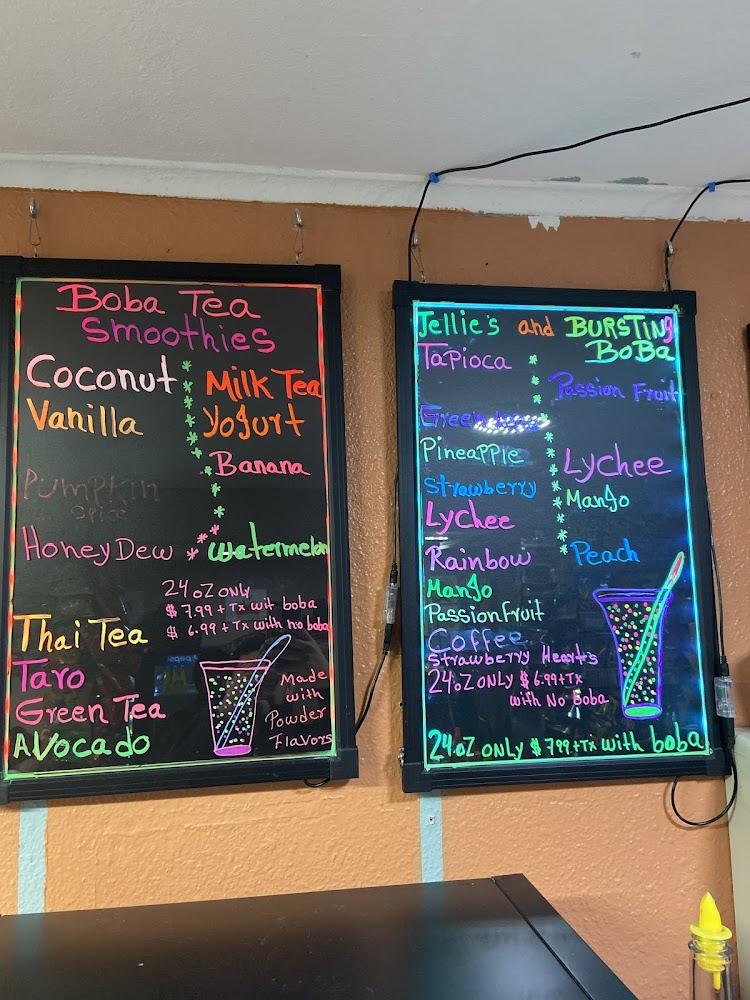 Boba Tea
Smoothies
Coconut
Vanilla
Pumpkin
Spice
Honey Dew
Milk Tea
Yogurt
Banana
Watermelon
24 oz only
$ 7.99 + Tx wit boba
$ 6.99 + Tx with no boba
Thai Tea
Taro
Green Tea
Avocado
Made
with
Powder
Flavors
Jellie's and BURSTING
BoBa
Tapioca
Green
Pineapple
Strawberry
Lychee
Rainbow
Mango
Passionfruit
Coffee
Strawberry Hearts
Passion Fruit
Lychee
Mango
Peach
24oz only $ 6.99+Tx
with No Boba
24oz only $ 7.99+Tx with boba